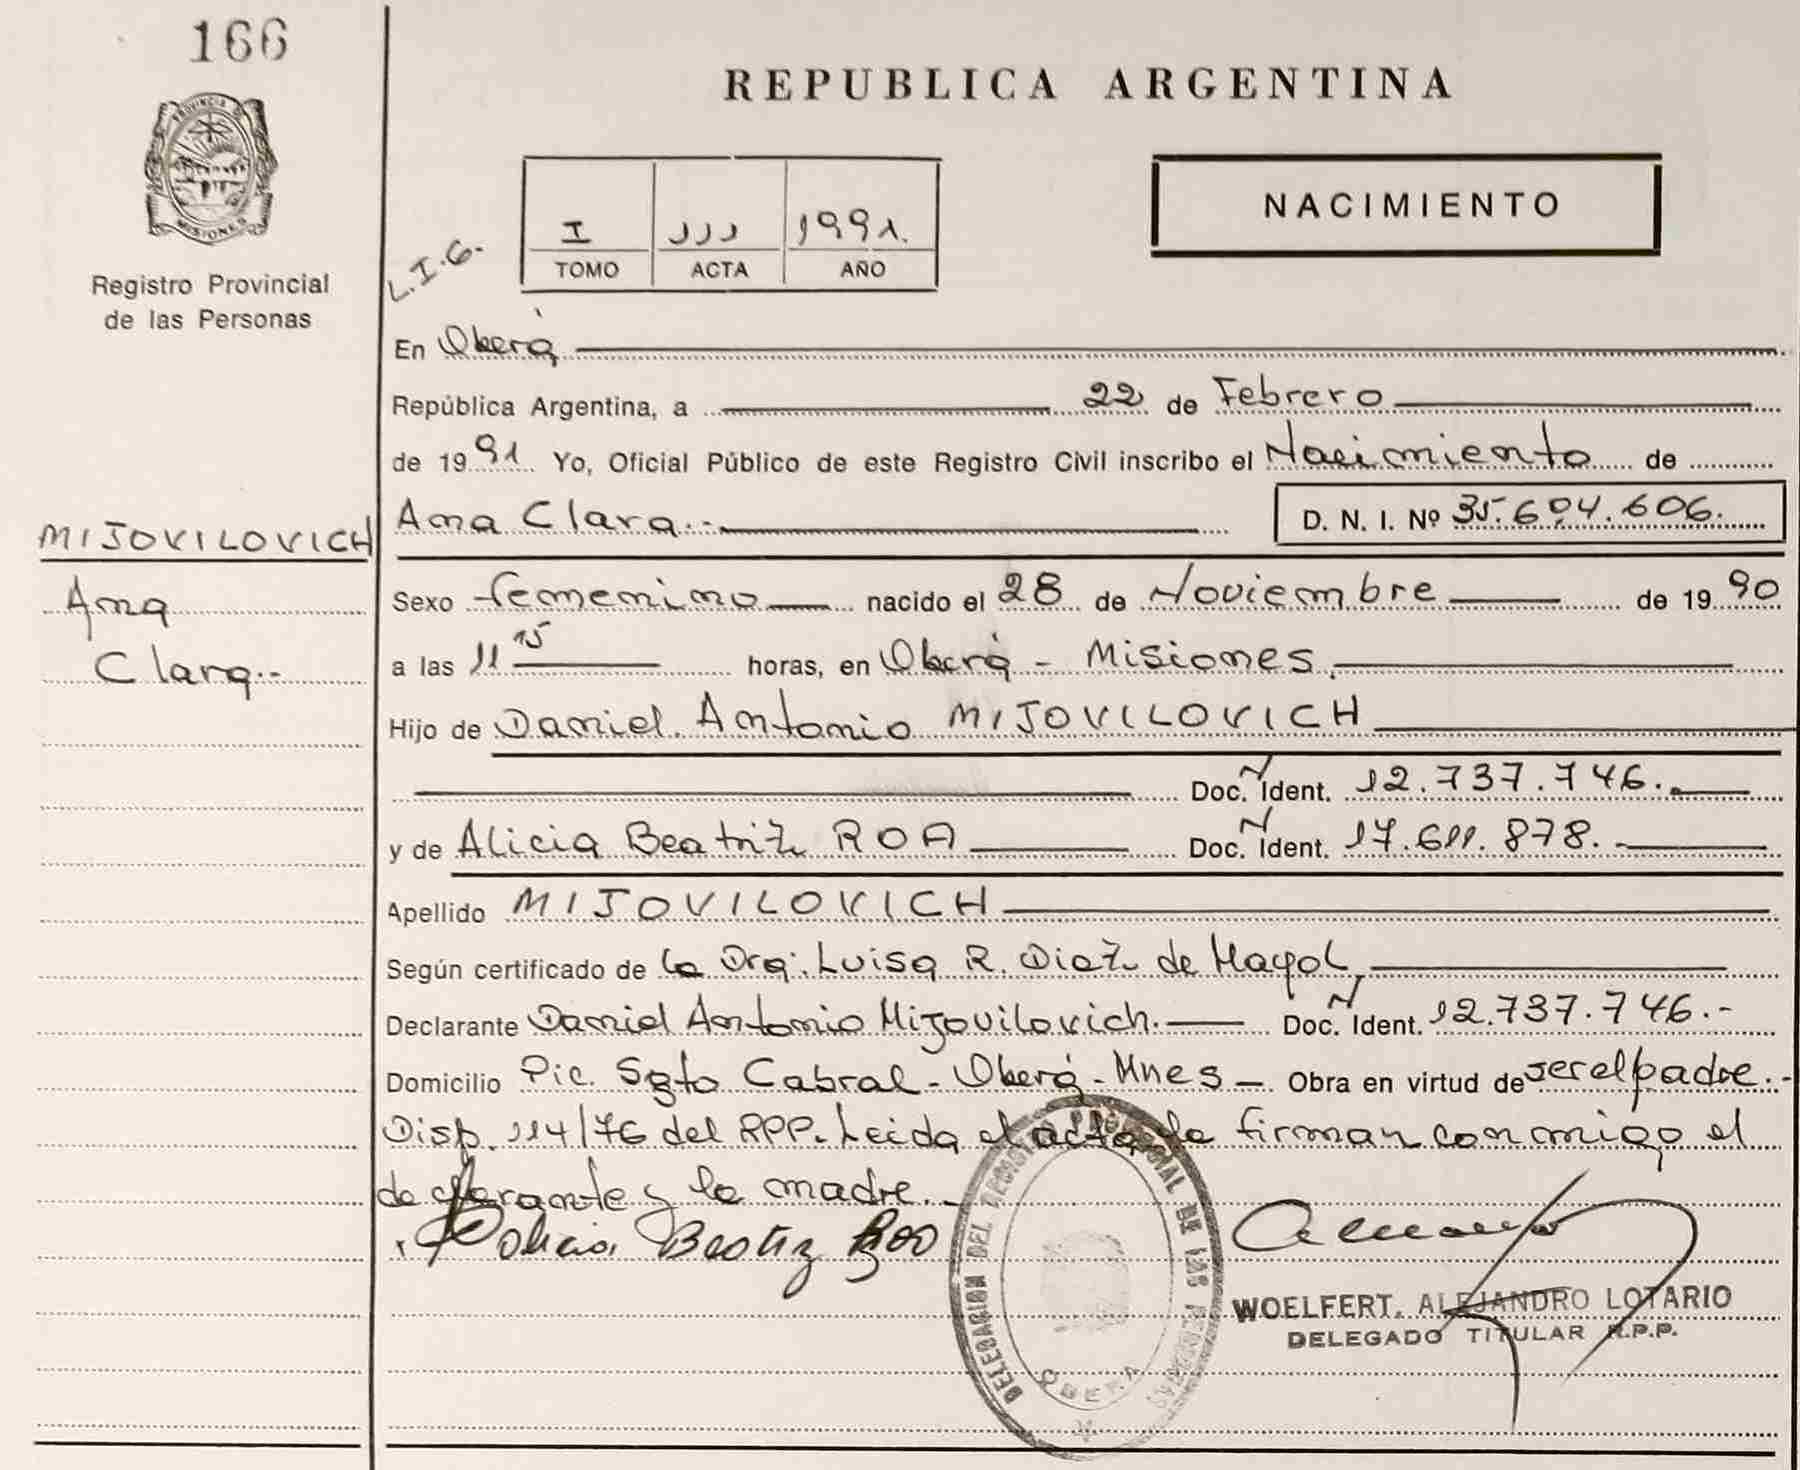 166
REPUBLICA ARGENTINA
PROVINCIA DE
MISIONES
Registro Provincial
de las Personas
L.I.G.
I 111 1991.
TOMO ACTA AÑO
NACIMIENTO
En Oberá
República Argentina, a 22 de Febrero
de 1991 Yo, Oficial Público de este Registro Civil inscribo el Nacimiento de
Ana Clara.- D. N. I. Nº 35.604.606.
MIJOVILOVICH
Ana
Clara.-
Sexo femenino nacido el 28 de Noviembre de 1990
a las 11 15 horas, en Oberá - Misiones,
Hijo de Daniel Antonio MIJOVILOVICH
Doc. Ident. 12.737.746.
y de Alicia Beatriz ROA Doc. Ident. 17.611.878.-
Apellido MIJOVILOVICH
Según certificado de la Dra. Luisa R. Diaz de Mayol,
Declarante Daniel Antonio Mijovilovich.- Doc. Ident. 12.737.746.-
Domicilio Pic. Sgto Cabral - Oberá - Mnes - Obra en virtud de ser el padre.-
Disp. 114/76 del RPP. Leida el acta la firman conmigo el
declarante y la madre.
Alicia Beatriz Roa
DELEGACION DEL REGISTRO PROVINCIAL DE LAS PERSONAS
OBERA
WOELFERT, ALEJANDRO LOTARIO
DELEGADO TITULAR R.P.P.